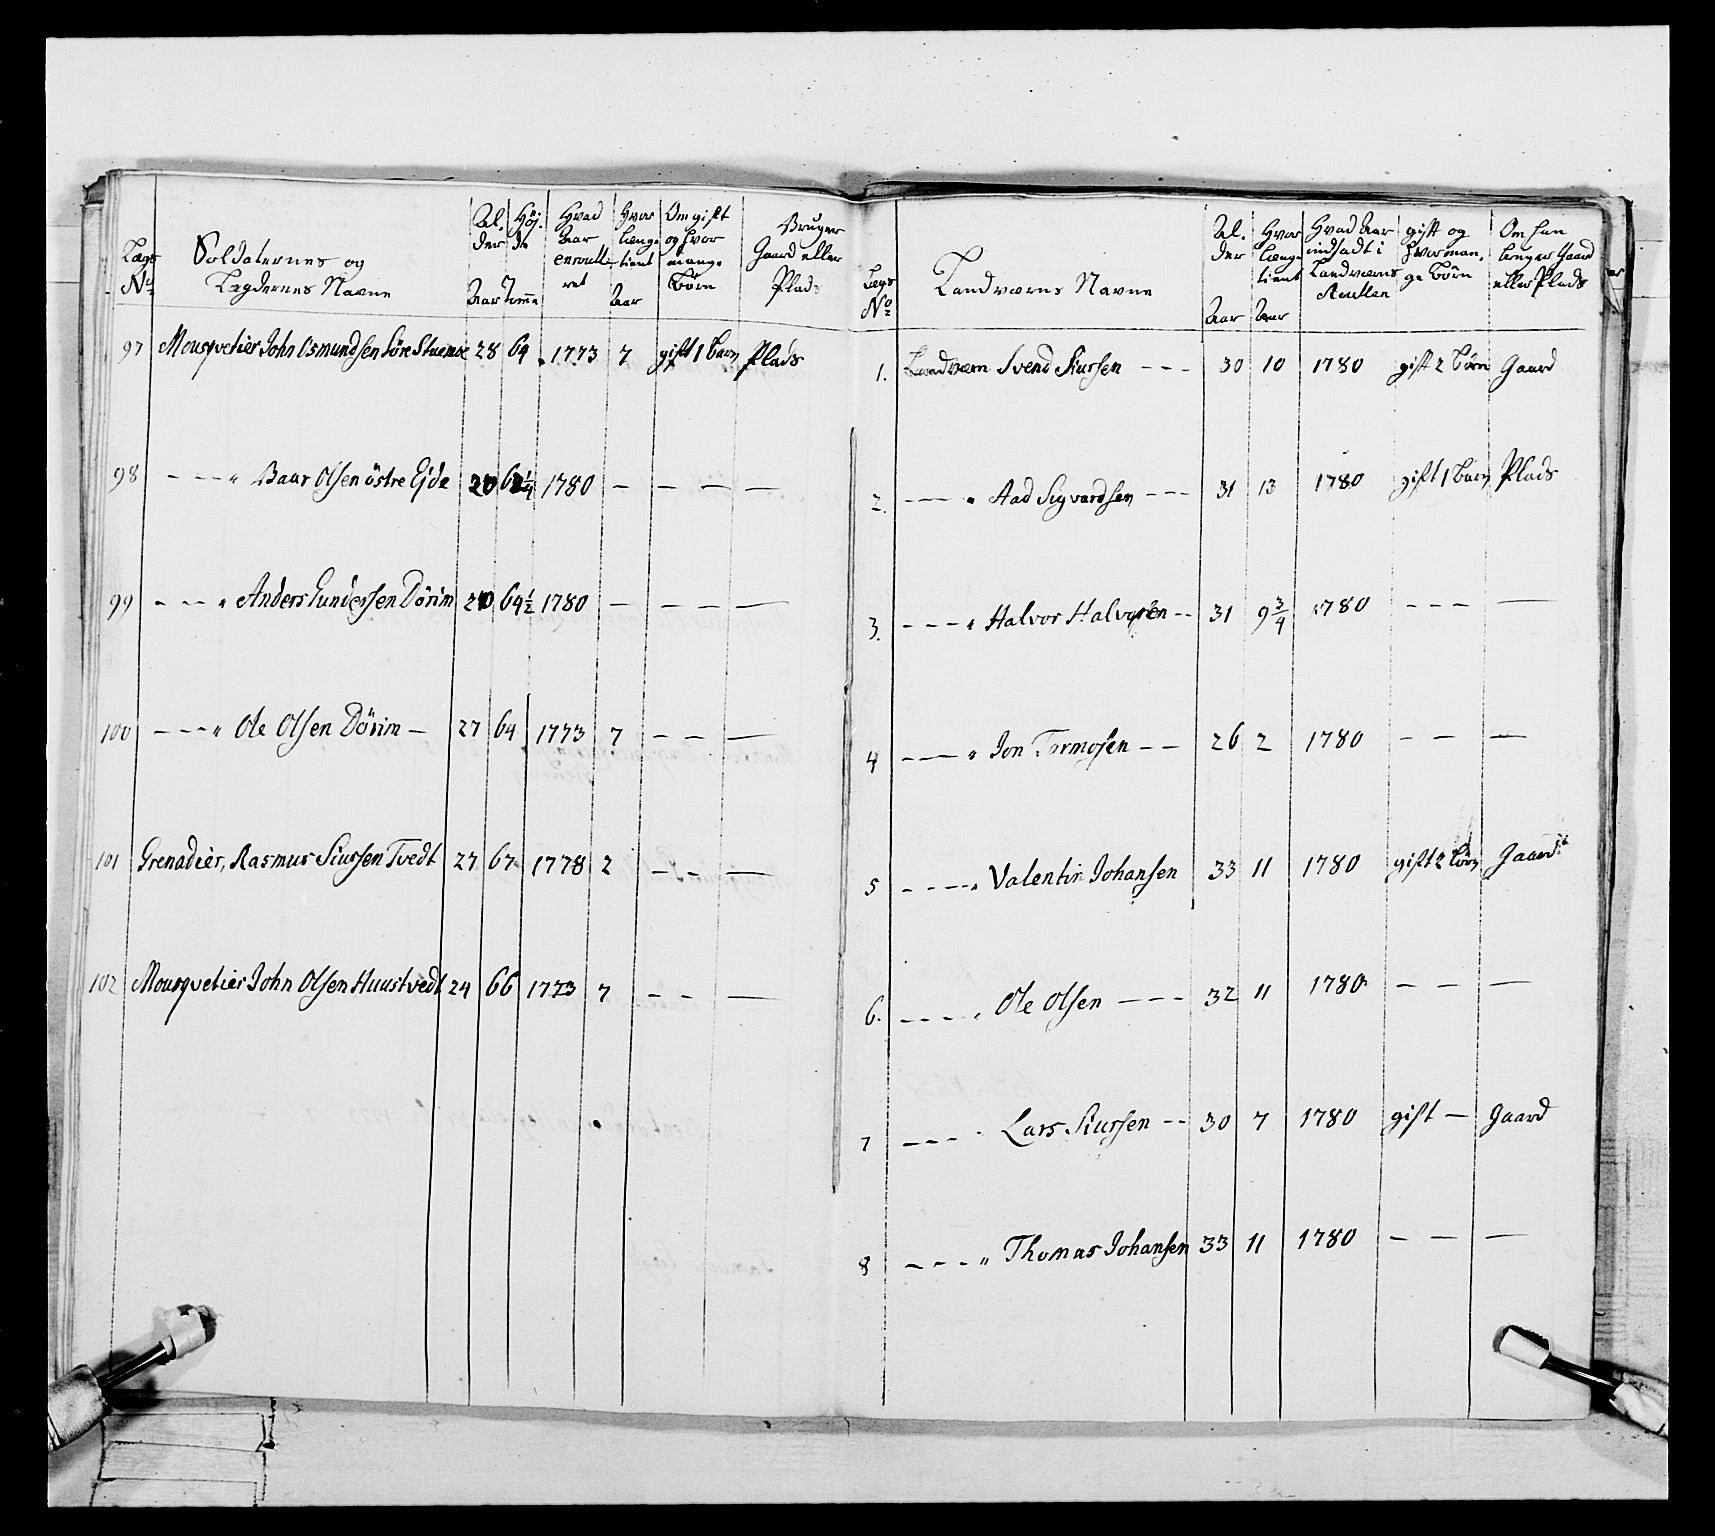 Lægs No
Soldaternes og Lægdernes Navne
Alder Aar
Höjde Tomme
Hvad Aar enroulleret
Hvor længe tient Aar
Om gift og hvor mange Börn
Bruger Gaard eller Plads
97 Mousqvetier John Osmundsen 28 64 1773 7 gift 1 Barn Plads
98 — — — " Baar Olsen östre Ejde 20 1780 — — — — —
99 — — — " Anders Gundersen Dörim 20 64 1/2 1780 — — — — —
100 — — — " Ole Olsen Dörim — 27 64 1773 7 — — —
101 Grenadier, Rasmus Siursen Tvedt 27 67 1778 2 — — —
102 Mousqvetier John Olsen Huustvedt 24 66 1773 7 — — —
Lægs No
Landværns Navne
Alder Aar
Hvor længe tient Aar
Hvad Aar indsadt i Landværns Rullen
gift og hvor mange Börn
Om han bruger Gaard eller Plads
1. Landværn Svend Siursen — — — 30 10 1780 gift 2 Börn Gaard
2. — — " Aad Sigvardsen — — — 31 13 1780 gift 1 Barn Plads
3. — — — " Halvor Halvorsen — — 31 9 3/4 1780 — — — —
4 — — — " Jon Tormosen — — 26 2 1780 — — —
5 — — — — " Valentin Johansen 33 11 1780 gift 2 Börn Gaard
6. — — — — " Ole Olsen — — — 32 11 1780 — — —
7 — — — Lars Siursen — — 30 7 1780 gift — Gaard
8 — — — — " Thomas Johansen 33 11 1780 — — —